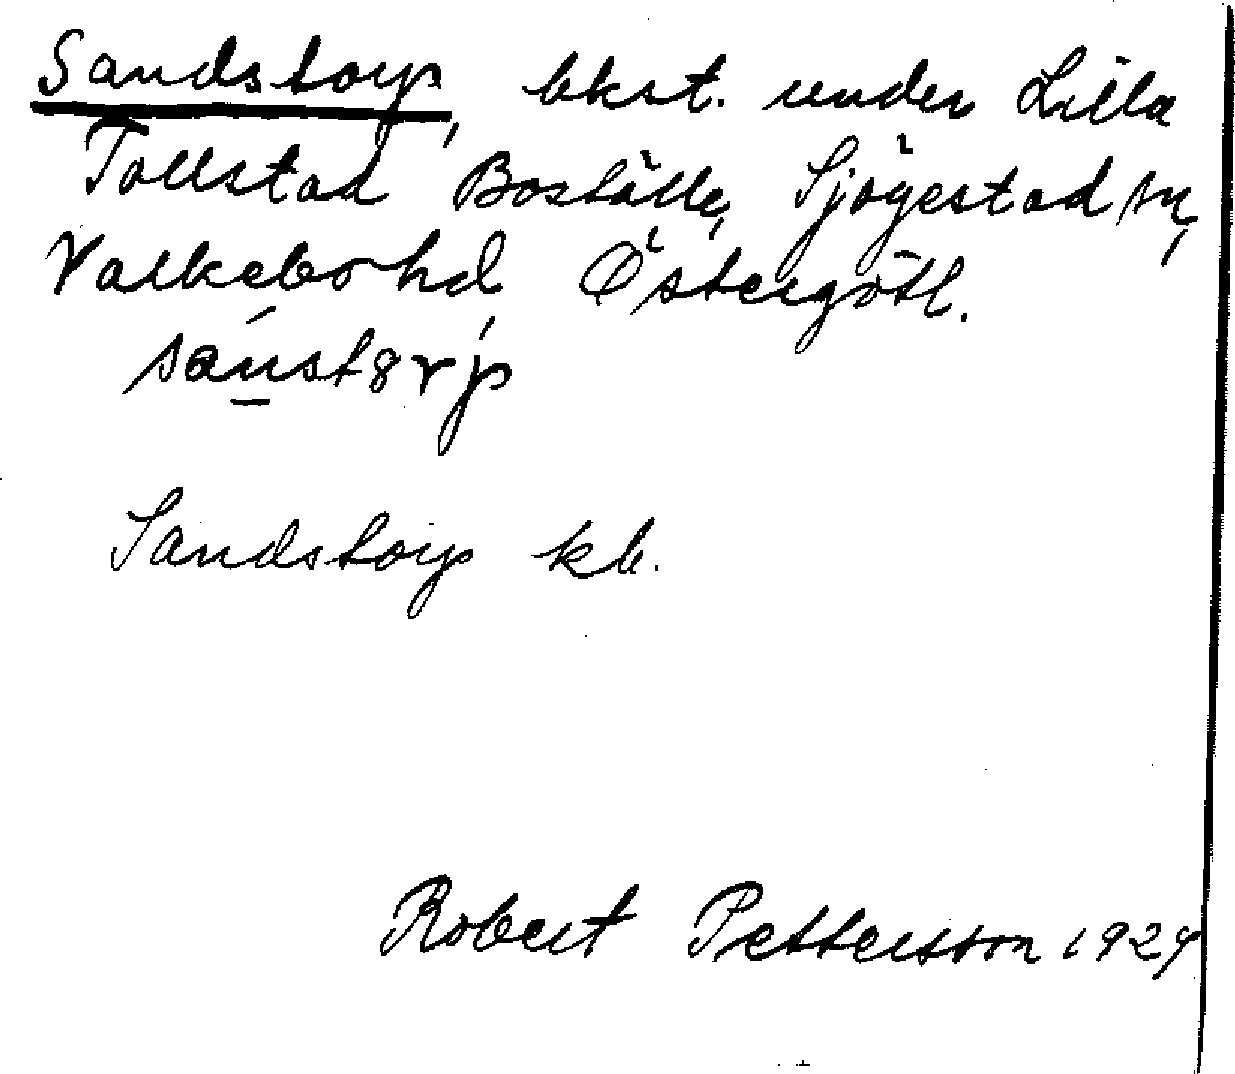 Sandstorp, bkst. under Lilla
Tollstad Boställe, Sjögestad sn,
Valkebo hd, Östergötl.
sanst8rp
Sandstorp kb.
Robert Pettersson 1924